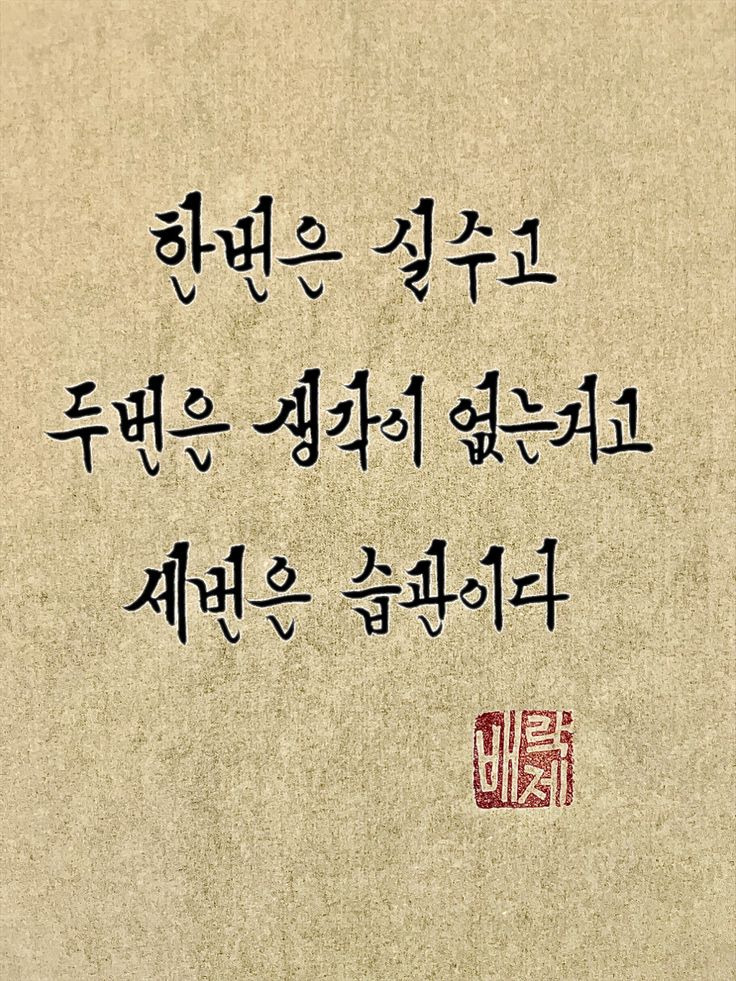 한번은 실수고
두번은 생각이 없는거고
세번은 습관이다
배락제